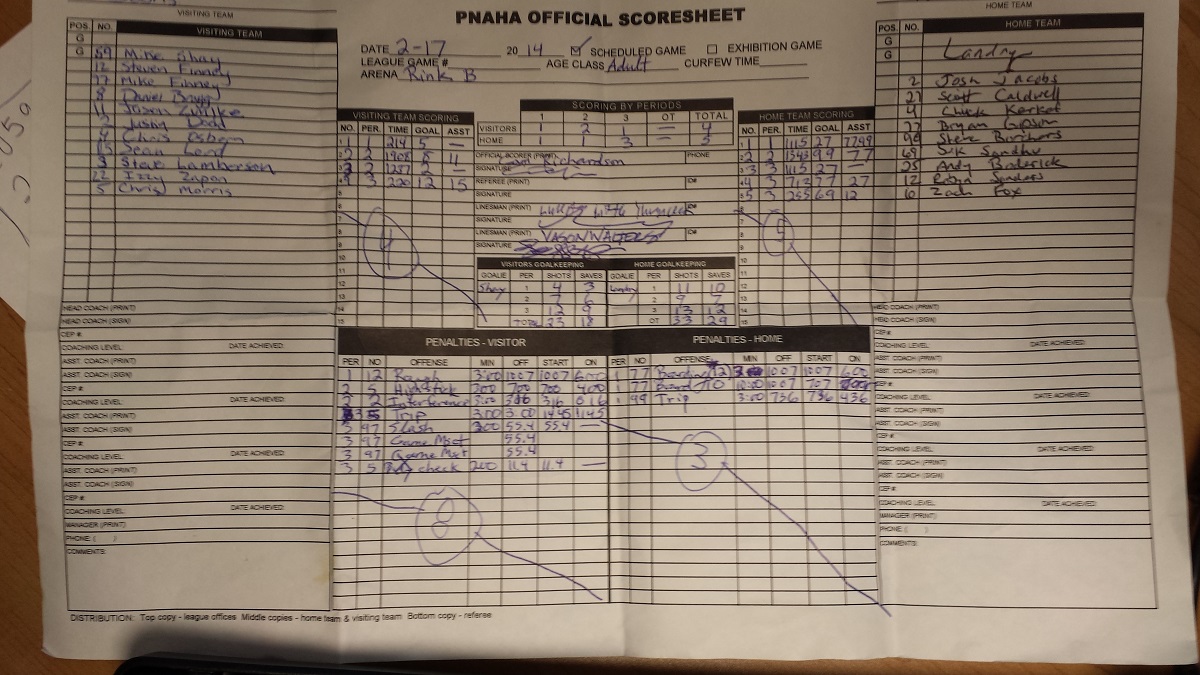 VISITING TEAM
PNAHA OFFICIAL SCORESHEET
HOME TEAM
POS. NO. VISITING TEAM
G
G
59 Mike Shay
12 Steven Finney
77 Mike Finney
8 Daniel
11 Jason
2 Justin
4 Chris Osborn
15 Sean Lord
3 Steve Lamberson
22 Izzy Zapon
5 Chris Morris
DATE 2-17 20 14 SCHEDULED GAME EXHIBITION GAME
LEAGUE GAME # AGE CLASS Adult CURFEW TIME
ARENA Rink B
POS. NO. HOME TEAM
G
G Landry
2 Josh Jacobs
27 Scott Caldwell
4 Chuck Kerket
77 Bryan
99 Steve Borchers
69 Sik Sandhu
25 Andy Baderick
12 Robin Sanders
6 Zach Fox
VISITING TEAM SCORING
NO. PER. TIME GOAL ASST
1 1 214 5 —
2 2 1908 8 11
3 2 1257 2 —
4 3 200 12 15
4
SCORING BY PERIODS
1 2 3 OT TOTAL
VISITORS 1 2 1 — 4
HOME 1 1 3 — 5
OFFICIAL SCORER (PRINT) Richardson PHONE
SIGNATURE
REFEREE (PRINT) C#
SIGNATURE
LINESMAN (PRINT) C#
SIGNATURE
LINESMAN (PRINT) JASON WALTERS C#
SIGNATURE
HOME TEAM SCORING
NO. PER. TIME GOAL ASST
1 1 1115 27 7799
2 2 1343 99 77
3 3 1115 27 —
4 3 712 77 27
5 3 255 69 12
5
VISITORS GOALKEEPING HOME GOALKEEPING
GOALIE PER SHOTS SAVES GOALIE PER SHOTS SAVES
Shay 1 4 3 Landry 1 11 10
2 7 6 2 9 7
3 12 9 3 13 12
TOTAL 23 18 OT 33 29
PENALTIES - VISITOR
PER NO OFFENSE MIN OFF START ON
1 12 Rough 3:00 1007 1007 600
2 5 High stick 300 700 700 400
2 2 Interference 3:00 316 316 016
3 5 Trip 3:00 3:00 1445 1145
3 97 Slash 300 55.4 55.4 —
3 97 Game Msct 55.4
3 97 Game Msct 55.4
3 5 check 200 11.4 11.4 —
8
PENALTIES - HOME
PER NO OFFENSE MIN OFF START ON
1 77 Boarding 1007 1007 600
1 77 Board 10 10:00 1007 707
1 99 Trip 3:00 736 736 436
3
HEAD COACH (PRINT)
HEAD COACH (SIGN)
CEP #
COACHING LEVEL DATE ACHIEVED:
ASST. COACH (PRINT)
ASST. COACH (SIGN)
CEP #
COACHING LEVEL DATE ACHIEVED:
ASST. COACH (PRINT)
ASST. COACH (SIGN)
CEP #
COACHING LEVEL DATE ACHIEVED:
ASST. COACH (PRINT)
ASST. COACH (SIGN)
CEP #
COACHING LEVEL DATE ACHIEVED:
MANAGER (PRINT)
PHONE: ( )
COMMENTS:
HEAD COACH (PRINT)
HEAD COACH (SIGN)
CEP #
COACHING LEVEL DATE ACHIEVED:
ASST. COACH (PRINT)
ASST. COACH (SIGN)
CEP #
COACHING LEVEL DATE ACHIEVED:
ASST. COACH (PRINT)
ASST. COACH (SIGN)
CEP #
COACHING LEVEL DATE ACHIEVED:
ASST. COACH (PRINT)
ASST. COACH (SIGN)
CEP #
COACHING LEVEL DATE ACHIEVED:
MANAGER (PRINT)
PHONE: ( )
COMMENTS:
DISTRIBUTION: Top copy - league offices Middle copies - home team & visiting team Bottom copy - referee